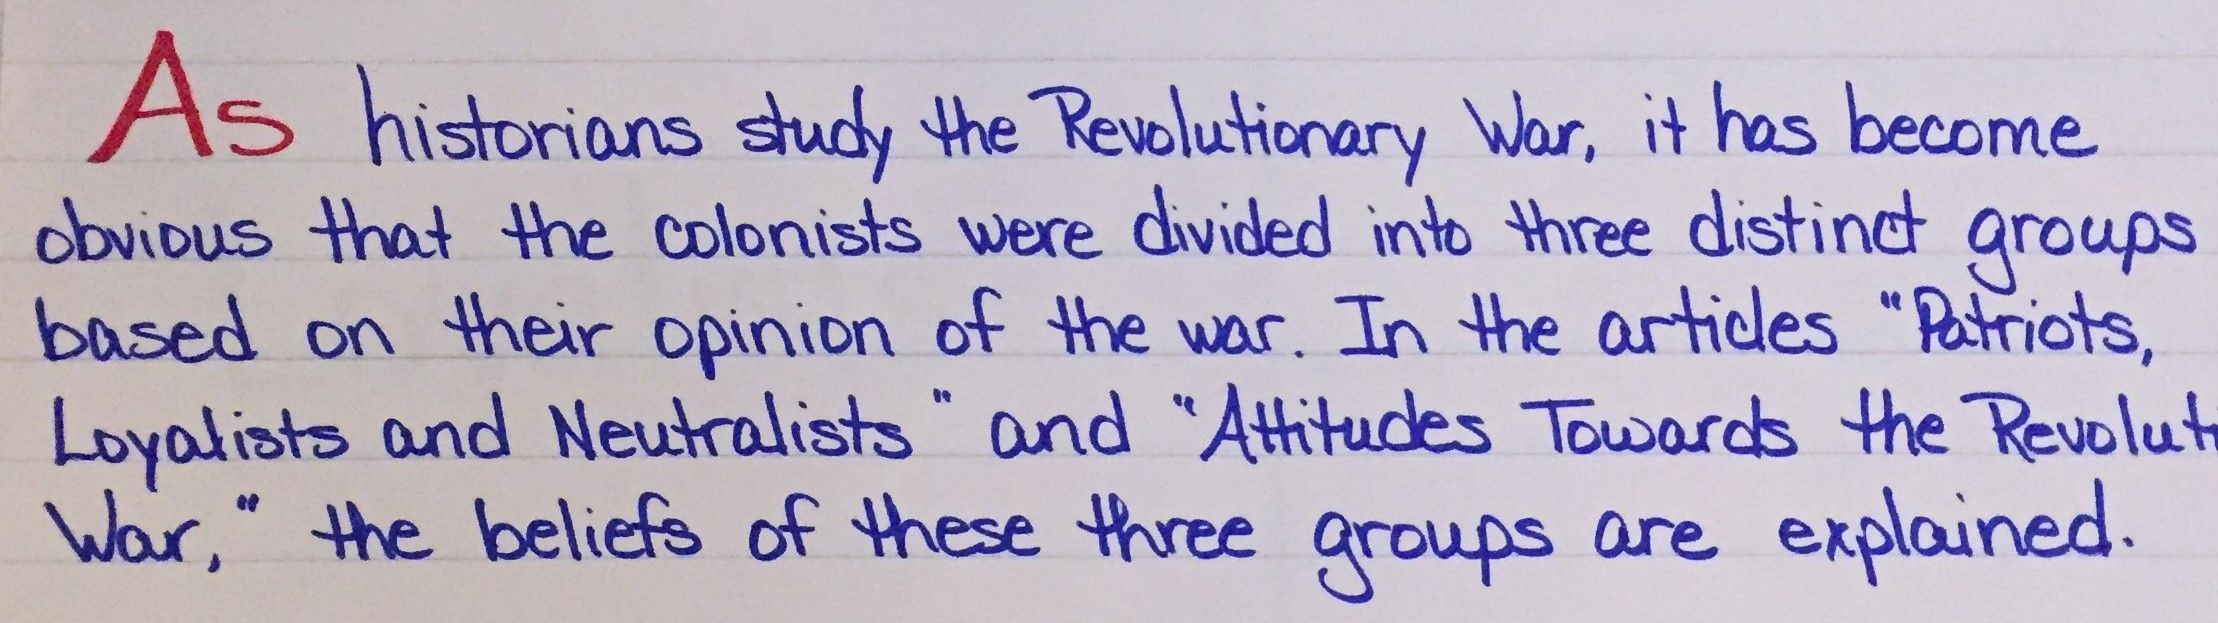 As historians study the Revolutionary War, it has become
obvious that the colonists were divided into three distinct groups
based on their opinion of the war. In the articles "Patriots,
Loyalists and Neutralists" and "Attitudes Towards the Revoluti
War," the beliefs of these three groups are explained.